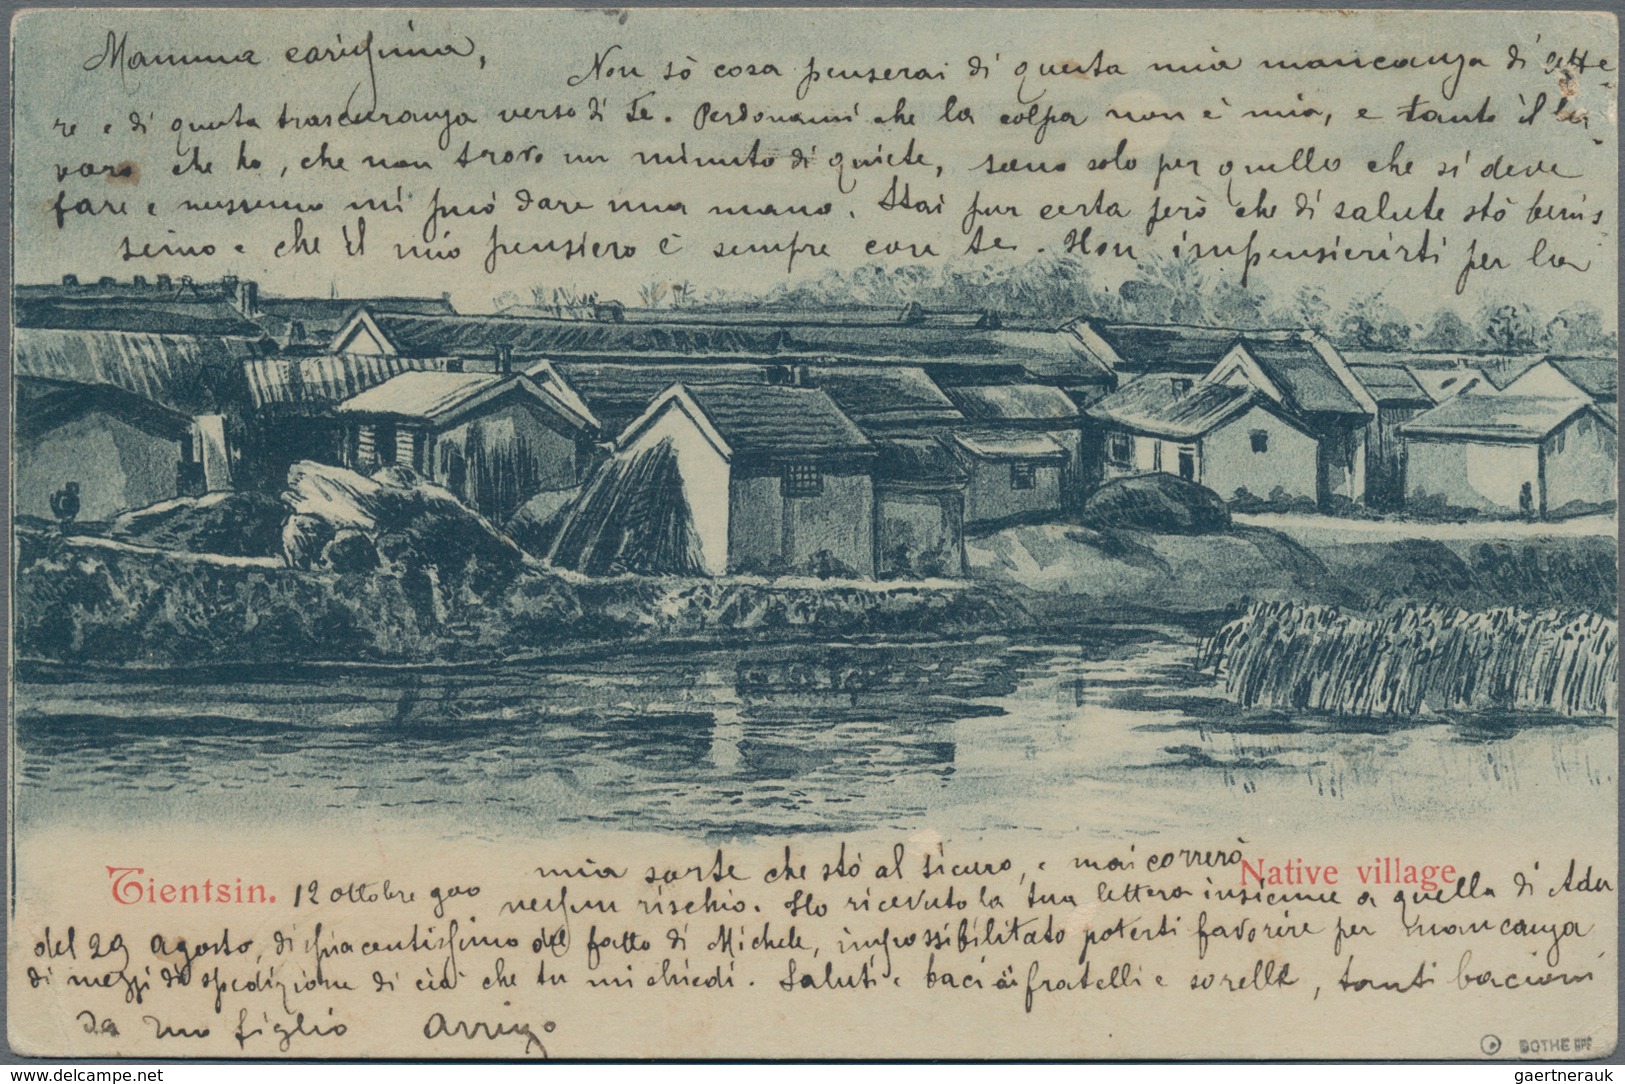 Mamma carissima,
Non sò cosa penserai di questa mia mancanza di lette-
re e di questa trascuranza verso di Te. Perdonami che la colpa non è mia, e tanto il la-
voro che ho, che non trovo un minuto di quiete, sono solo per quello che si deve
fare e nessuno mi può dare una mano. Stai pur certa però che di salute stò benis
simo e che il mio pensiero è sempre con te. Non impensierirti per la
mia sorte che stò al sicuro, e mai correrò
Native village
Tientsin.
12 ottobre 900
nessun rischio. Ho ricevuto la tua lettera insieme a quella di Ada
del 29 agosto, dispiacentissimo del fatto di Michele, impossibilitato poterti favorire per mancanza
di mezzi di spedizione di ciò che tu mi chiedi. Saluti e baci ai fratelli e sorelle, tanti bacioni
da tuo figlio Arrigo
BOTHE BPP
gaertnerauk / www.delcampe.net